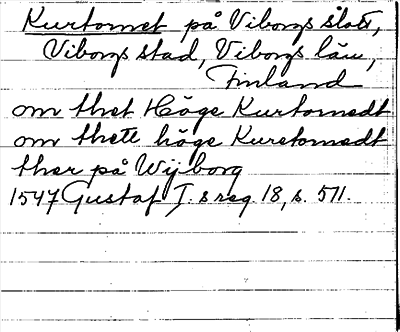 Kurtornet på Viborgs slott,
Viborgs stad, Viborgs län,
Finland
om thet Höge Kurtornedt
om thett höge Kuretornedt
ther på Wijborg
1547 Gustaf I. s reg. 18, s. 511.